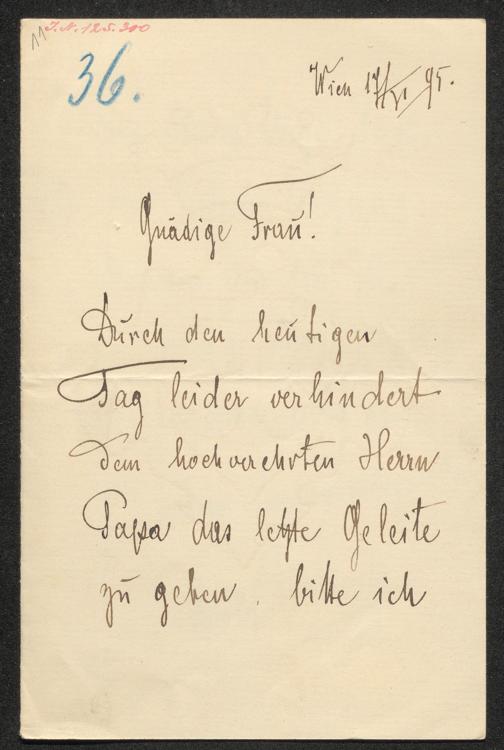 J.N. 125.300
36.
Wien 17/XI 95.
Gnädige Frau!
Durch den heutigen
Tag leider verhindert
dem hochverehrten Herrn
Papa das letzte Geleite
zu geben, bitte ich